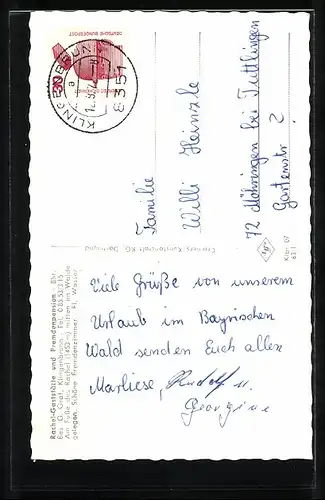 Rachel-Gaststätte und Fremdenpension
Bes. G. Graf, Klingenbrunn
Am Fuße des Rachel (1452 m) mitten im Walde
gelegen. Schöne Fremdenzimmer. Fl. Wasser
Viele Grüße von unserem
Urlaub im Bayrischen
Wald senden Euch allen
Marliese, Rudolf u.
Georgine
Cramers Kunstanstalt KG, Dortmund
DEUTSCHE BUNDESPOST
30
KLINGENBRUNN
8351
Familie
Willi Heinzle
72 Möhringen bei Tuttlingen
Gartenstr. 2